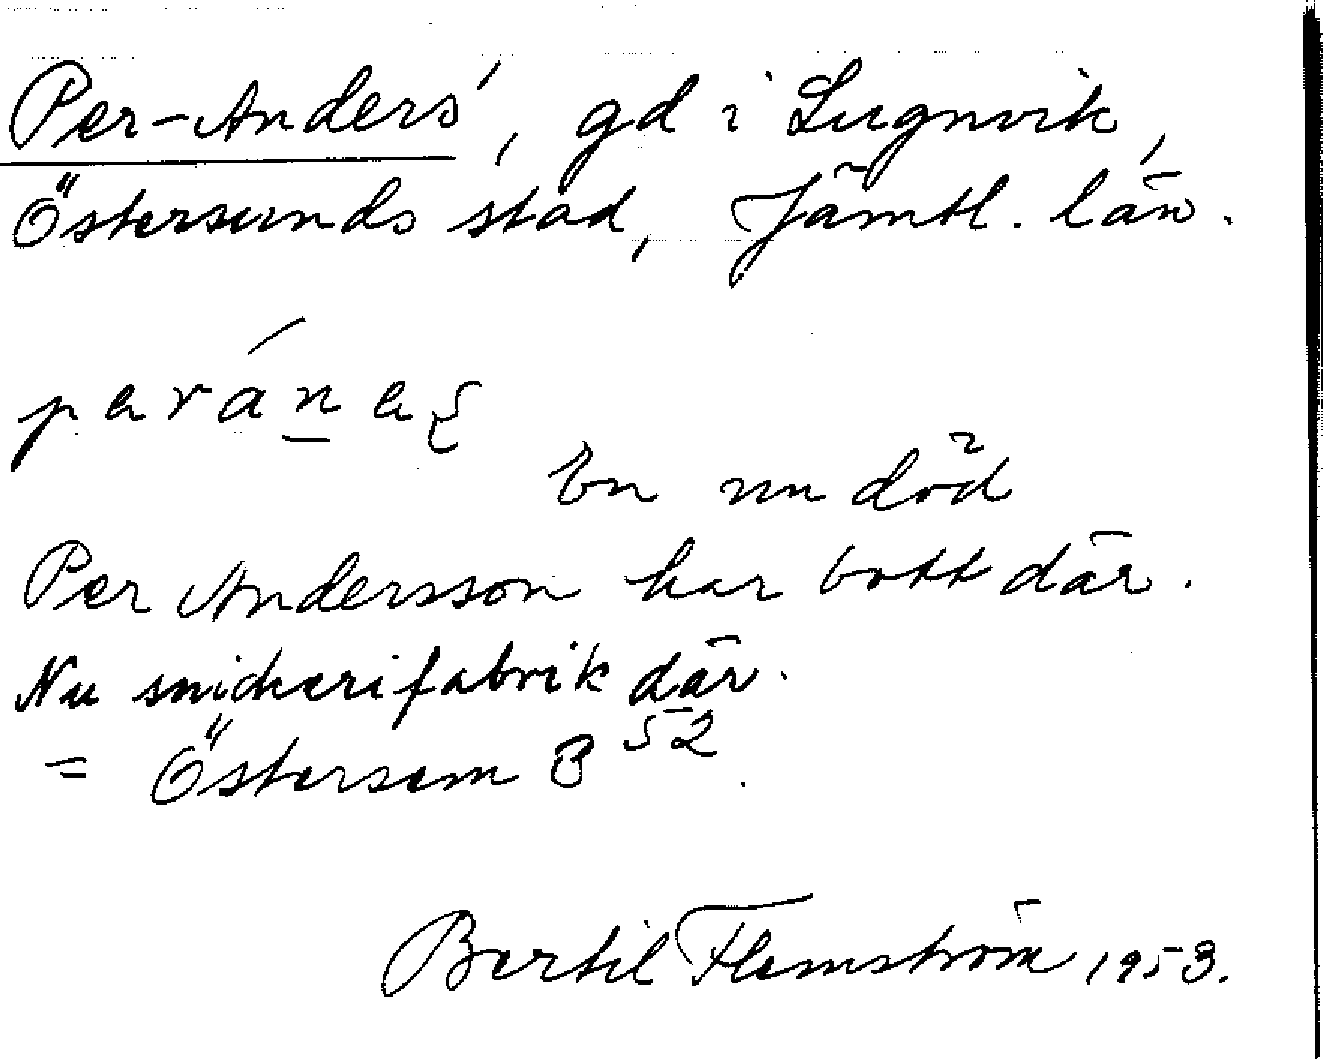 Per-Anders', gd i Lugnvik,
Östersunds stad, Jämtl. län.
En nu död
Per Andersson har bott där.
Nu snickerifabrik där.
= Östersem 3 52.
Bertil Flemström 1953.